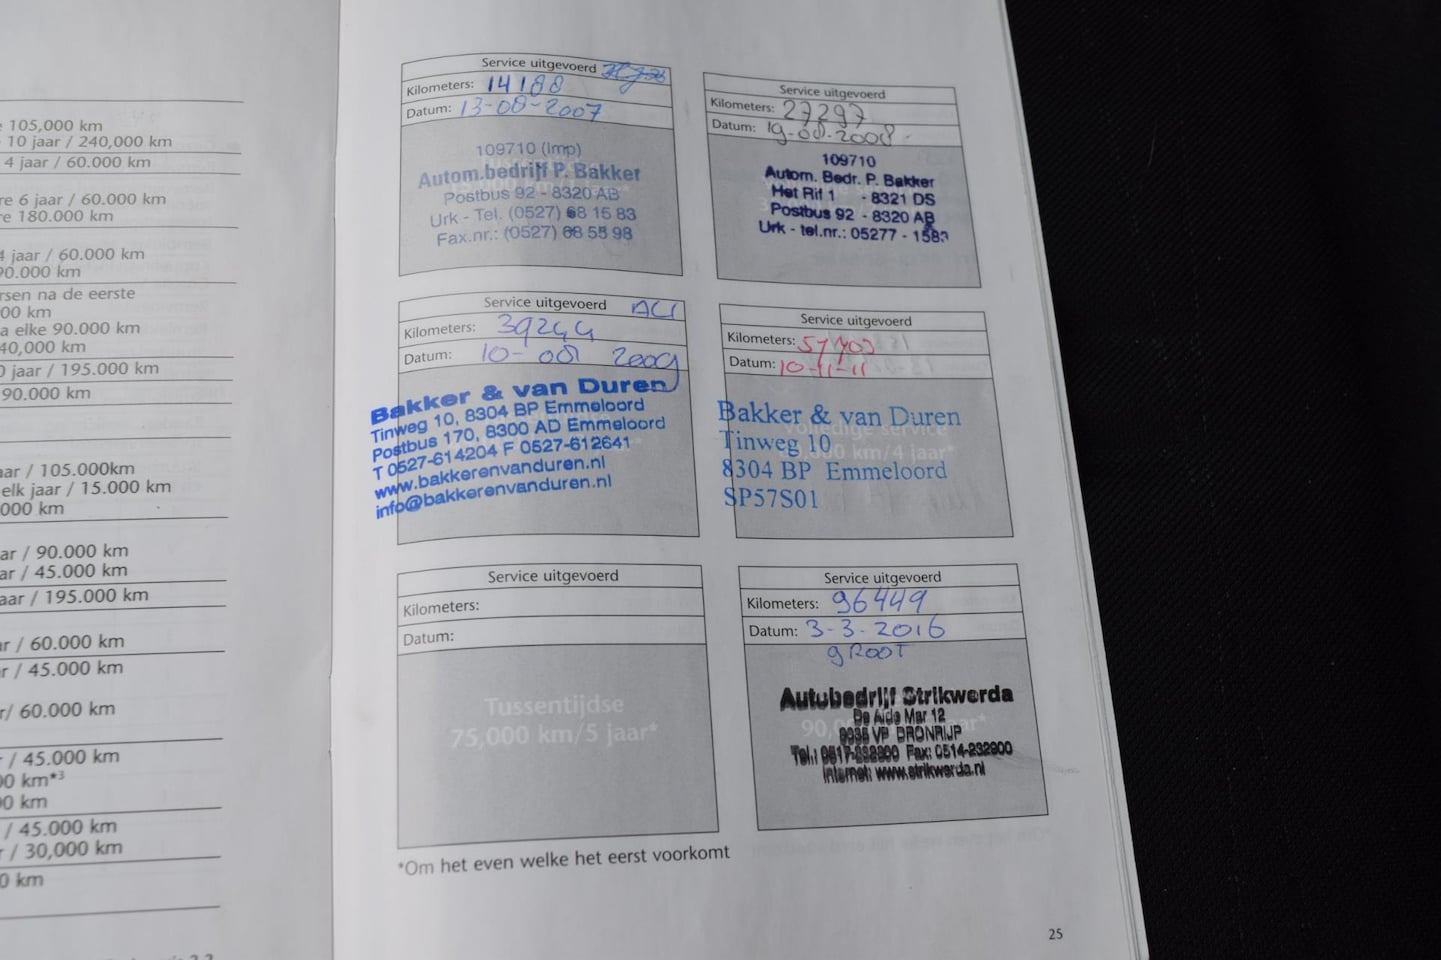 105,000 km
10 jaar / 240,000 km
4 jaar / 60.000 km
re 6 jaar / 60.000 km
re 180.000 km
4 jaar / 60.000 km
90.000 km
rsen na de eerste
00 km
a elke 90.000 km
40,000 km
0 jaar / 195.000 km
90.000 km
aar / 105.000km
elk jaar / 15.000 km
000 km
ar / 90.000 km
ar / 45.000 km
aar / 195.000 km
ar / 60.000 km
r / 45.000 km
r/ 60.000 km
/ 45.000 km
00 km*3
00 km
/ 45.000 km
r / 30,000 km
0 km
Service uitgevoerd
Kilometers: 14188
Datum: 13-08-2007
109710 (Imp)
Autom.bedrijf P. Bakker
Postbus 92 - 8320 AB
Urk - Tel. (0527) 68 15 83
Fax.nr.: (0527) 68 55 98
Service uitgevoerd
Kilometers: 27297
Datum: 19-08-2008
109710
Autom. Bedr. P. Bakker
Het Rif 1 - 8321 DS
Postbus 92 - 8320 AB
Urk - tel.nr.: 05277 - 1583
Service uitgevoerd
Kilometers: 39244
Datum: 10-08 2009
Bakker & van Duren
Tinweg 10, 8304 BP Emmeloord
Postbus 170, 8300 AD Emmeloord
T 0527-614204 F 0527-612641
www.bakkerenvanduren.nl
info@bakkerenvanduren.nl
Service uitgevoerd
Kilometers: 57703
Datum: 10-11-11
Volledige service
000 km/4 jaar*
Bakker & van Duren
Tinweg 10
8304 BP Emmeloord
SP57S01
Service uitgevoerd
Kilometers:
Datum:
Tussentijdse
75,000 km/5 jaar*
Service uitgevoerd
Kilometers: 96449
Datum: 3-3-2016
gROOT
90,
Autobedrijf Strikwerda
De Alde Mar 12
VP DRONRIJP
Tel.: Fax: 0514-232800
Internet: www.strikwerda.nl
*Om het even welke het eerst voorkomt
25